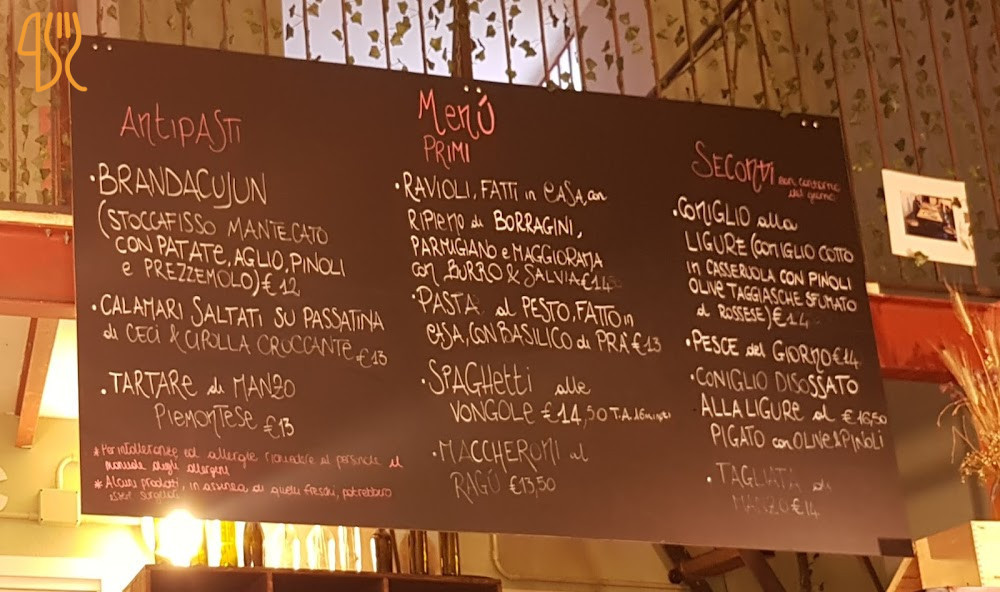 Menù
ANTIPASTI
BRANDACUJUN
(STOCCAFISSO MANTECATO
CON PATATE, AGLIO, PINOLI
e PREZZEMOLO) €12
CALAMARI SALTATI SU PASSATINA
di CECI & CIPOLLA CROCCANTE €13
TARTARE di MANZO
PIEMONTESE €13
* Per intolleranze ed allergie richiedere al personale il
manuale degli allergeni
* Alcuni prodotti, in assenza di quelli freschi, potrebbero
PRIMI
RAVIOLI, FATTI in CASA, con
RIPIENO di BORRAGINI,
PARMIGIANO e MAGGIORANA
con BURRO & SALVIA €14
PASTA al PESTO, FATTO in
CASA, CON BASILICO di PRA' €13
SPAGHETTI alle
VONGOLE €14,50 T.A.
MACCHERONI al
RAGÙ €13,50
SECONDI
CONIGLIO alla
LIGURE (CONIGLIO COTTO
in CASSERUOLA CON PINOLI
OLIVE TAGGIASCHE SFUMATO
al ROSSESE) €14
PESCE del GIORNO €14
CONIGLIO DISOSSATO
ALLA LIGURE al €16,50
PIGATO con OLIVE & PINOLI
TAGLIATA di
MANZO €14